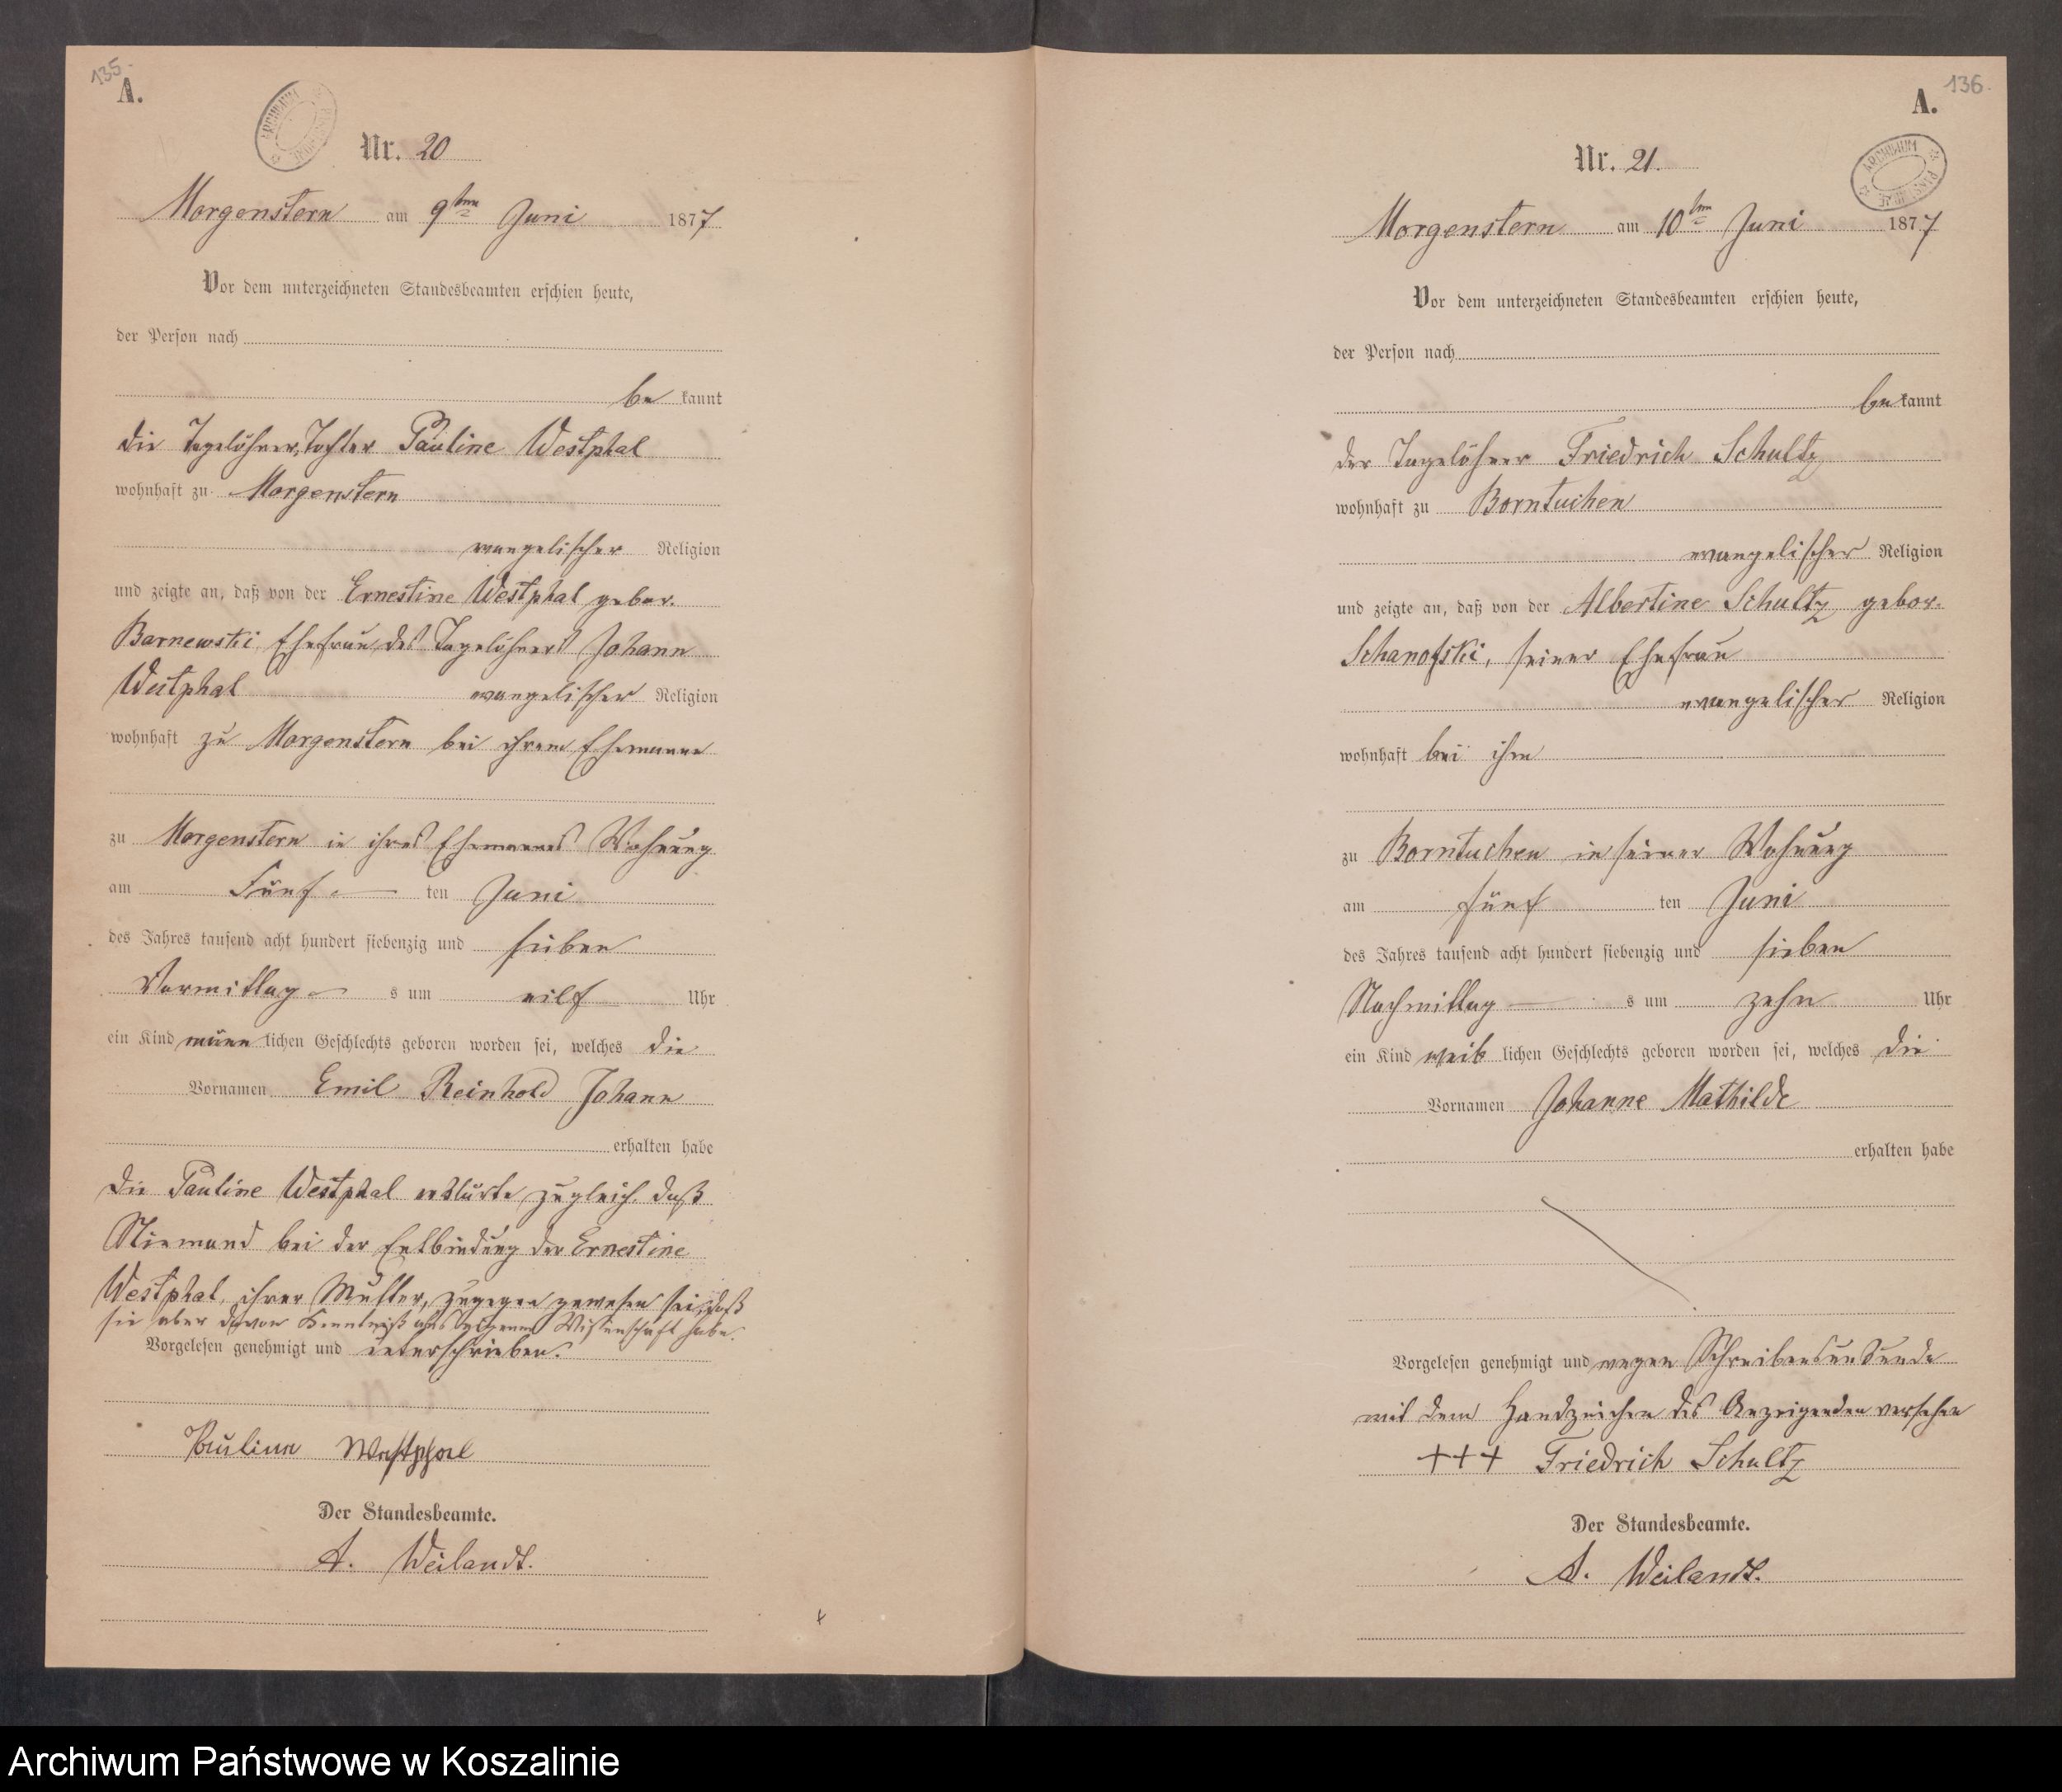 135.
A.
ARCHIWUM
Nr. 20
Morgenstern am 9ten Juni 1877
Vor dem unterzeichneten Standesbeamten erschien heute,
der Person nach
be kannt
die Tagelöhner Tochter Pauline Westphal
wohnhaft zu Morgenstern
evangelischer Religion
und zeigte an, daß von der Ernestine Westphal gebor.
Barnewski, Ehefrau des Tagelöhners Johann
Westphal evangelischer Religion
wohnhaft zu Morgenstern bei ihrem Ehemanne
zu Morgenstern in ihres Ehemannes Wohnung
am Fünf ten Juni
des Jahres tausend acht hundert siebenzig und sieben
Vormittag s um eilf Uhr
ein Kind männ lichen Geschlechts geboren worden sei, welches die
Vornamen Emil Reinhold Johann
erhalten habe
Die Pauline Westphal erklärte zugleich daß
Niemand bei der Entbindung der Ernestine
Westphal, ihrer Mutter, zugegen gewesen sei, daß
sie aber davon Kenntniß aus eigener Wissenschaft habe.
Vorgelesen genehmigt und unterschrieben.
Pauline Westphal
Der Standesbeamte.
A. Weilandt.
136.
A.
ARCHIWUM
Nr. 21.
Morgenstern am 10ten Juni 1877
Vor dem unterzeichneten Standesbeamten erschien heute,
der Person nach
be kannt
der Tagelöhner Friedrich Schultz
wohnhaft zu Borntuchen
evangelischer Religion
und zeigte an, daß von der Albertine Schultz gebor.
Schanofski, seiner Ehefrau
evangelischer Religion
wohnhaft bei ihm
zu Borntuchen in seiner Wohnung
am fünf ten Juni
des Jahres tausend acht hundert siebenzig und sieben
Nachmittag s um zehn Uhr
ein Kind weib lichen Geschlechts geboren worden sei, welches die
Vornamen Johanne Mathilde
erhalten habe
Vorgelesen genehmigt und wegen Schreibensunkunde
mit dem Handzeichen des Anzeigenden versehen
+++ Friedrich Schultz
Der Standesbeamte.
A. Weilandt.
Archiwum Państwowe w Koszalinie